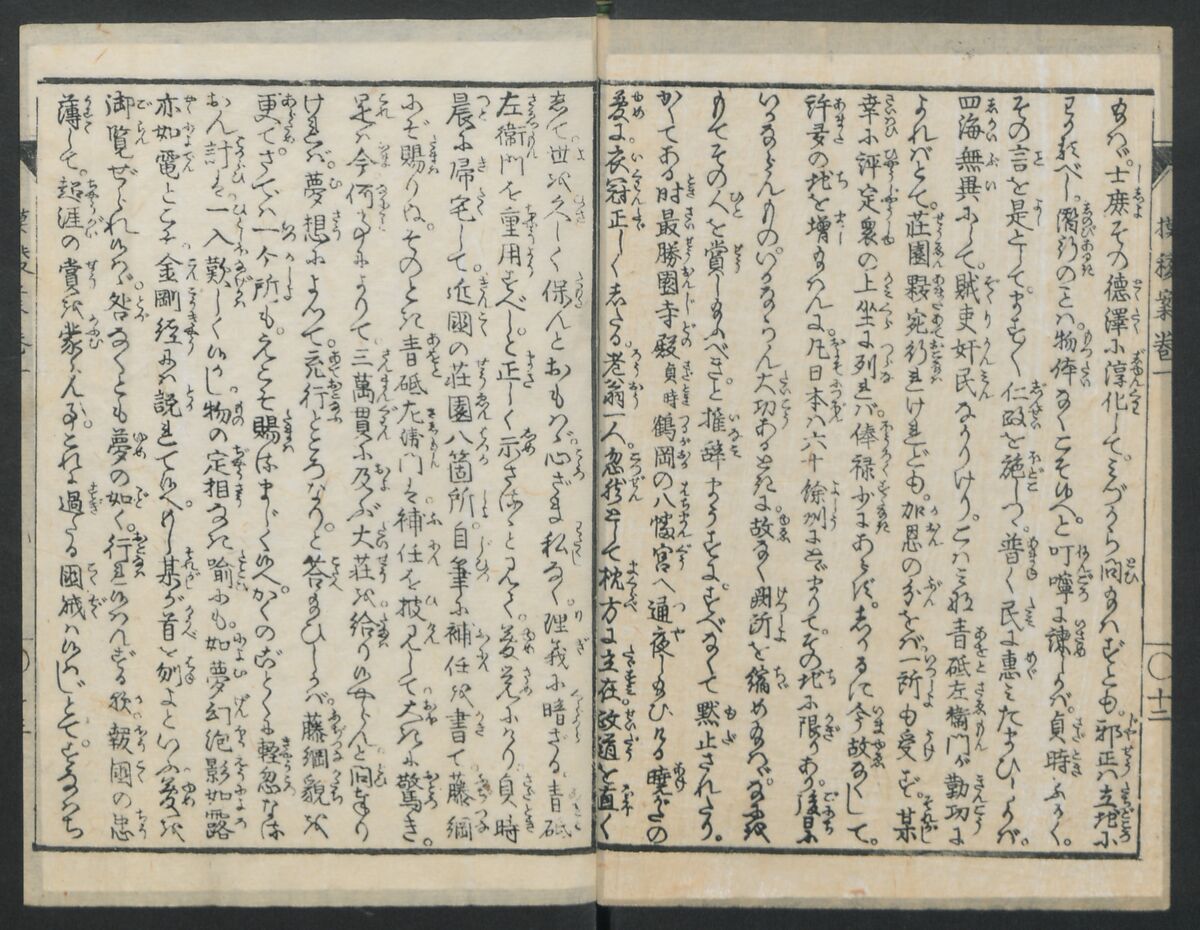 もバ。士庶その徳澤に淳化して。みづから問もハずとも。邪正ハ立地に
わかるべし。潜行のことハ物体なくこそ候へと叮嚀に諫しかバ。貞時ふかく
その言を是として。ますます仁政を施しつゝ。普く民に惠みたまひしかバ。
四海無異にして。賊吏奸民なかりけり。こハみな青砥左衛門が勤功に
よれバとて。荘園夥宛行れけれども。加恩の分をバ一所も受ず。某
幸に評定衆の上坐に列れバ。俸禄少きにあらず。しかるに今故なくして。
許多の地を増もハんに。凡日本ハ六十餘州に
いかならんもの。いかならん大功あるときに故なく闕所を縮めもハゞ。なにを
もてその人を賞しもふべきと推辞まうすに。すべなくて黙止されたり。
かくてある時最勝園寺殿貞時鶴岡の八幡宮へ通夜しもひける曉がたの
夢に。衣冠正しくしたる。老翁一人。忽然として枕方に立在。政道を直く
して世を久しく保んとおもハゞ。心ざま私なく。理義に暗ざる。青砥
左衛門を重用すべしと正しく示さるゝと見て。夢覚にけり。貞時
晨に帰宅して。近國の荘園八箇所。自筆に補任を書て藤綱
にぞ賜りぬ。そのとき青砥左衛門ハ補任を披見して大きに驚き。
是ハ今何事によりて。三萬貫に及ぶ大荘を給り候やらんと問奉り
けれバ。夢想によりて。充行ところなりと答もひしかバ。藤綱貌を
更てさてハ一个所も。えこそ賜るまじく候へ。かくのごとくに軽忽なる
おん計を一入歎しく候し。物の定相なき喩にも。如夢幻泡影如露
亦如電とこそ金剛経にハ説れて候へ。もし某が首を刎よといふ夢を
御覧ぜられ候ハゞ。咎なくとも夢の如く。行れ候ハんずる歟。報國の忠
薄して。超涯の賞を蒙らん事。これに過たる國賊ハ候ハじとて。すなはち